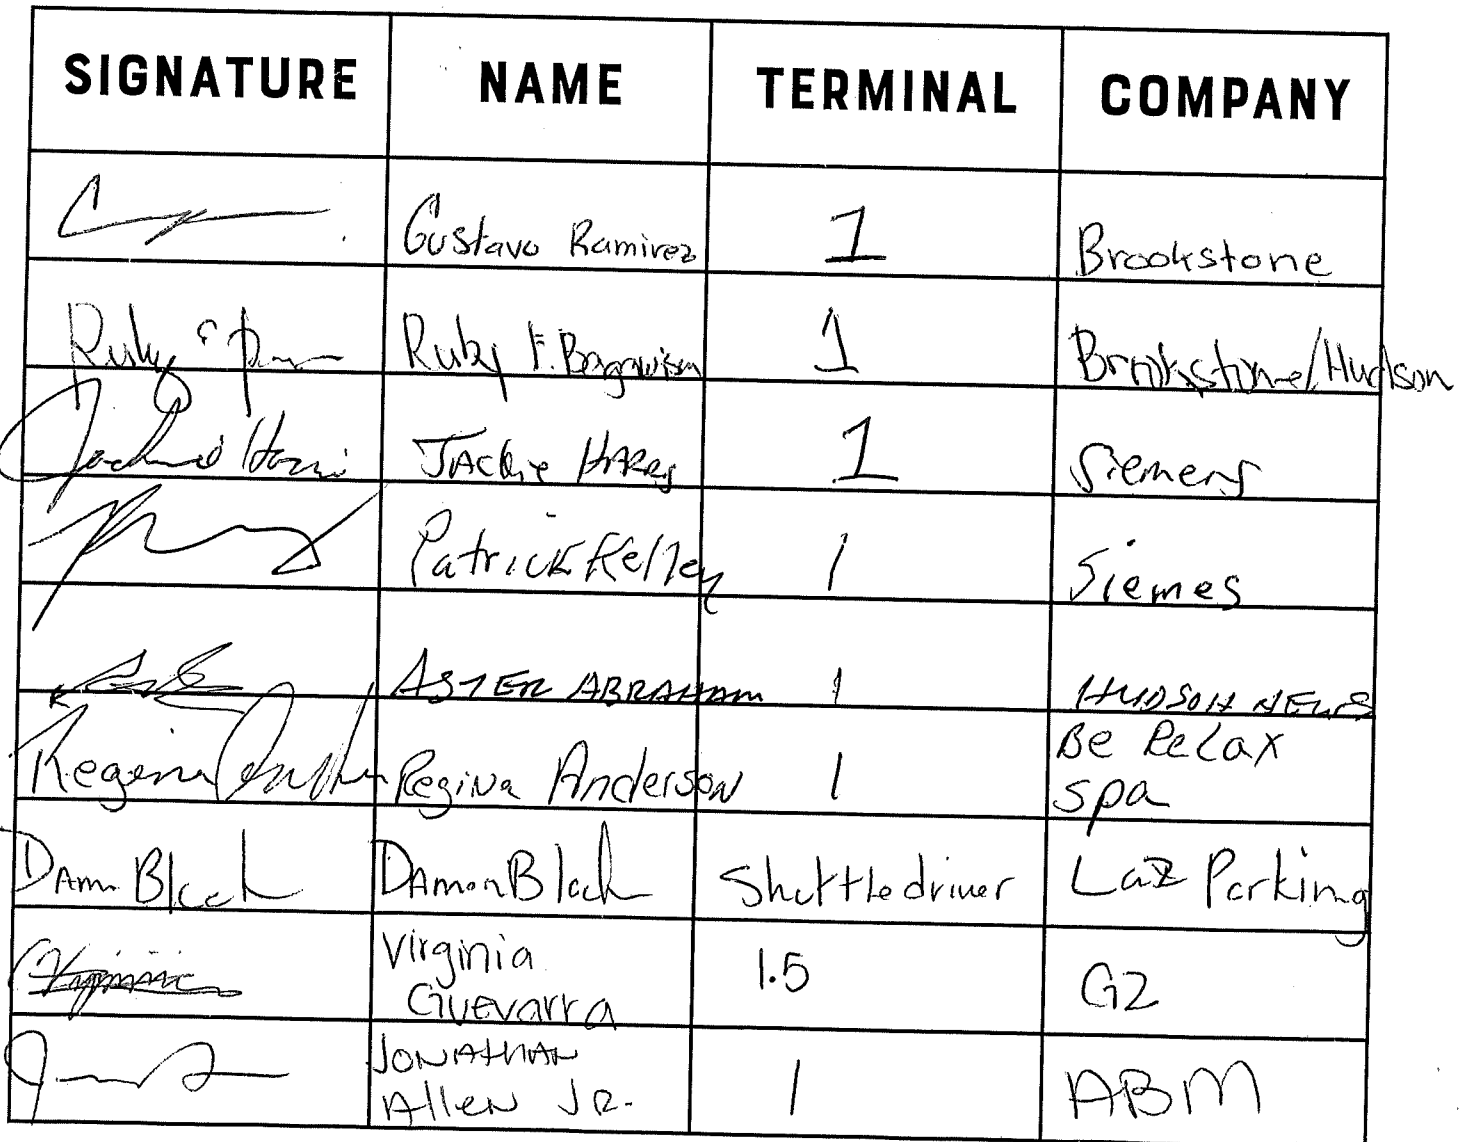 SIGNATURE NAME TERMINAL COMPANY
Gustavo Ramirez 1 Brookstone
Ruby Ruby F. 1 Brookstone/Hudson
Jackie Harris 1 Siemens
Patrick Kelley 1 Siemes
ASTER ABRAHAM 1 HUDSON NEWS
Regina Anderson Regina Anderson 1 Be Relax
spa
Damon Black Damon Black Shuttle driver Laz Parking
Virginia
Guevarra 1.5 G2
JONATHAN
Allen JR. 1 ABM